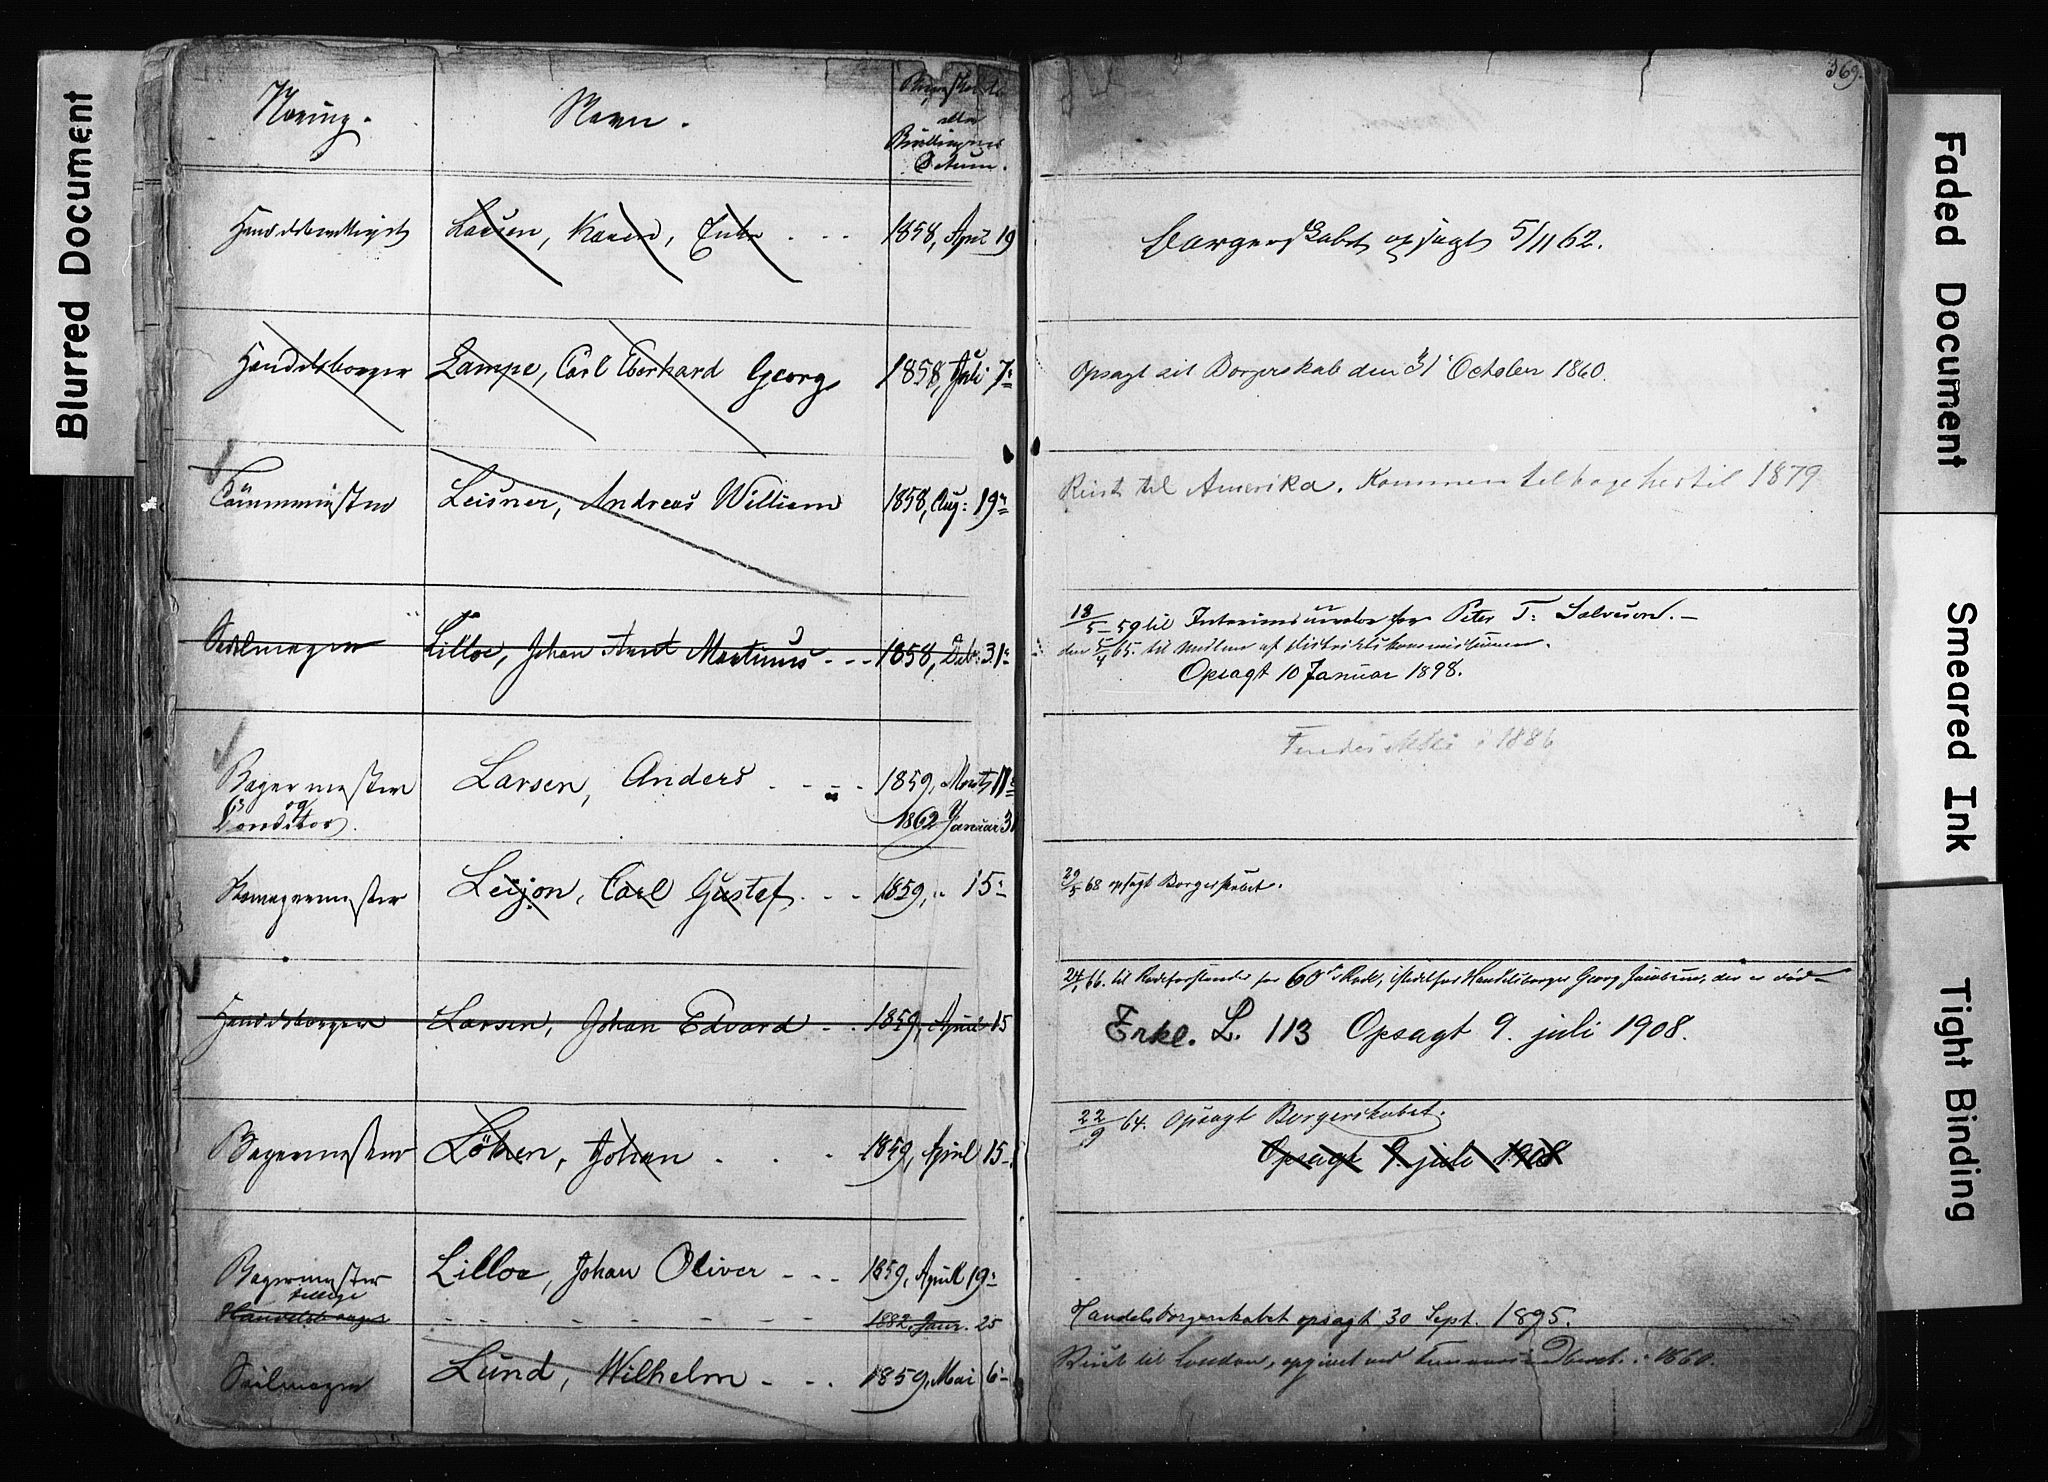 Blurred Document
Faded Document
Smeared Ink
Tight Binding
369.
Næring. Navn.
eller
Bevillingens
Datum.
Larsen, Karen, Enke - - - 1858, April 19
Borgerskabet opsagt 5/11 62.
Handelsborger Lampe, Carl Eberhard Georg 1858, Juli 7:
Opsagt sit Borgerskab den 31 October 1860.
Leisner, Andreas William 1858, Aug: 19:
Reist til Amerika. Kommen tilbage hertil 1879
Seilmager Lilloe, Johan Arnt Martinus - - - 1858, Debr: 31:
18/5 - 59 til for Peter T: Salveson. -
den 5/4 65. til Medlem af
Opsagt 10 Januar 1898.
Bagermester Larsen, Anders - - - 1859, Marts 11:
og
Conditor. 1862 Januar 3
i 1886
Skomagermester Leijon, Carl Gustaf - - - 1859, " 15:
29/5 68 opsagt Borgerskabet.
Handelsborger Larsen, Johan Edvard - - 1859, April 15
24/1 66. til for 60 Rode, istedetfor Handelsborger Georg Jacobsen, der er død -
Erkl. L. 113 Opsagt 9. juli 1908.
Bagermester Löken, Johan - - - 1859, April 15 -
22/9 64. Opsagt Borgerskabet.
Opsagt 9. juli 1908
Bagermester Lilloe, Johan Oliver - - - 1859, April 19:
tillige
Handelsborger - - - - - - - - 1882, Janr. 25
Handelsborgerskabet opsagt 30 Sept. 1895.
Seilmager Lund, Wilhelm - - - 1859, Mai 6 -
Reist til London, opgivet ved i 1860.